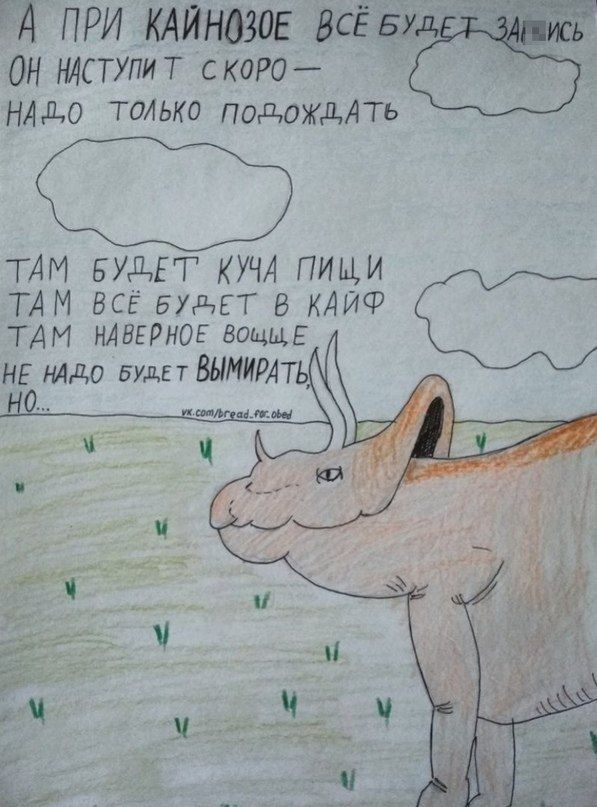 А ПРИ КАЙНОЗОЕ ВСЁ БУДЕТ
ОН НАСТУПИТ СКОРО —
НАДО ТОЛЬКО ПОДОЖДАТЬ
ТАМ БУДЕТ КУЧА ПИЩИ
ТАМ ВСЁ БУДЕТ В КАЙФ
ТАМ НАВЕРНОЕ ВОЩЩЕ
НЕ НАДО БУДЕТ ВЫМИРАТЬ,
НО...
vk.com/bread_for_obed